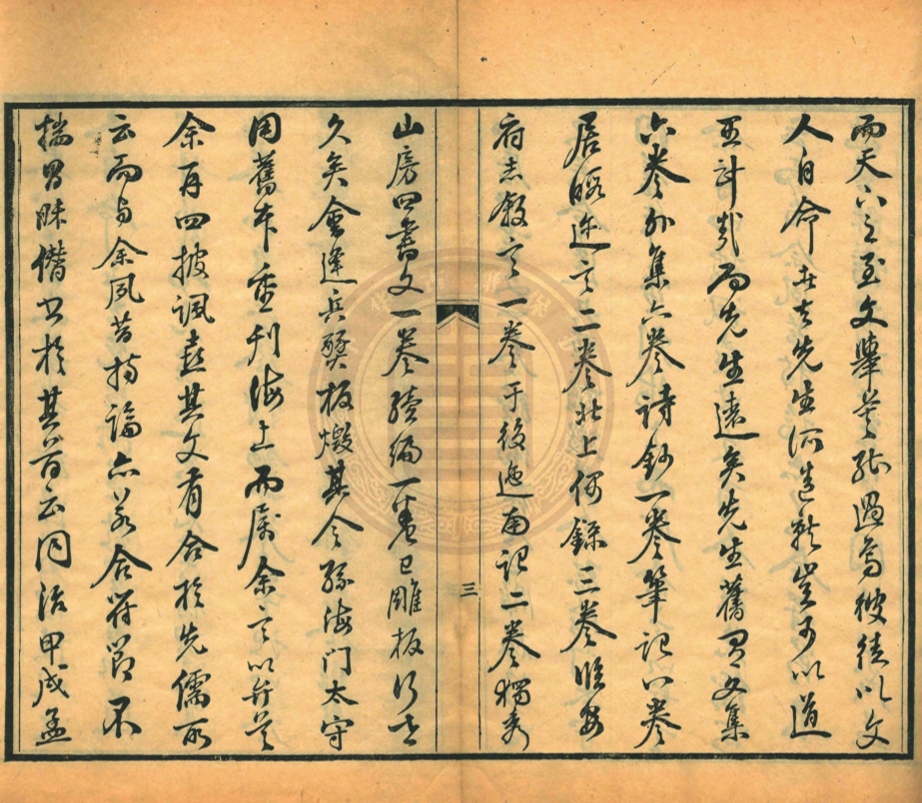 而天下之至文舉莫能過焉彼徒以文
人自命者去先生何遠歟豈可以道
里計哉而先生遠矣先生舊有文集
六卷外集六卷詩鈔一卷筆記八卷
居暇迩言二卷北上偶錄三卷臨安
府志敘言一卷于役迤南記二卷獨秀
山房四書文一卷續編一卷已雕板行世
久矣會逢兵燹板燬其令孫海門太守
因舊本重刊海上而属余言以弁首
余再四披諷喜其文有合於先儒所
云而与余夙昔持論亦若合符節不
揣冒昧僭書於其首云同治甲戌孟
三